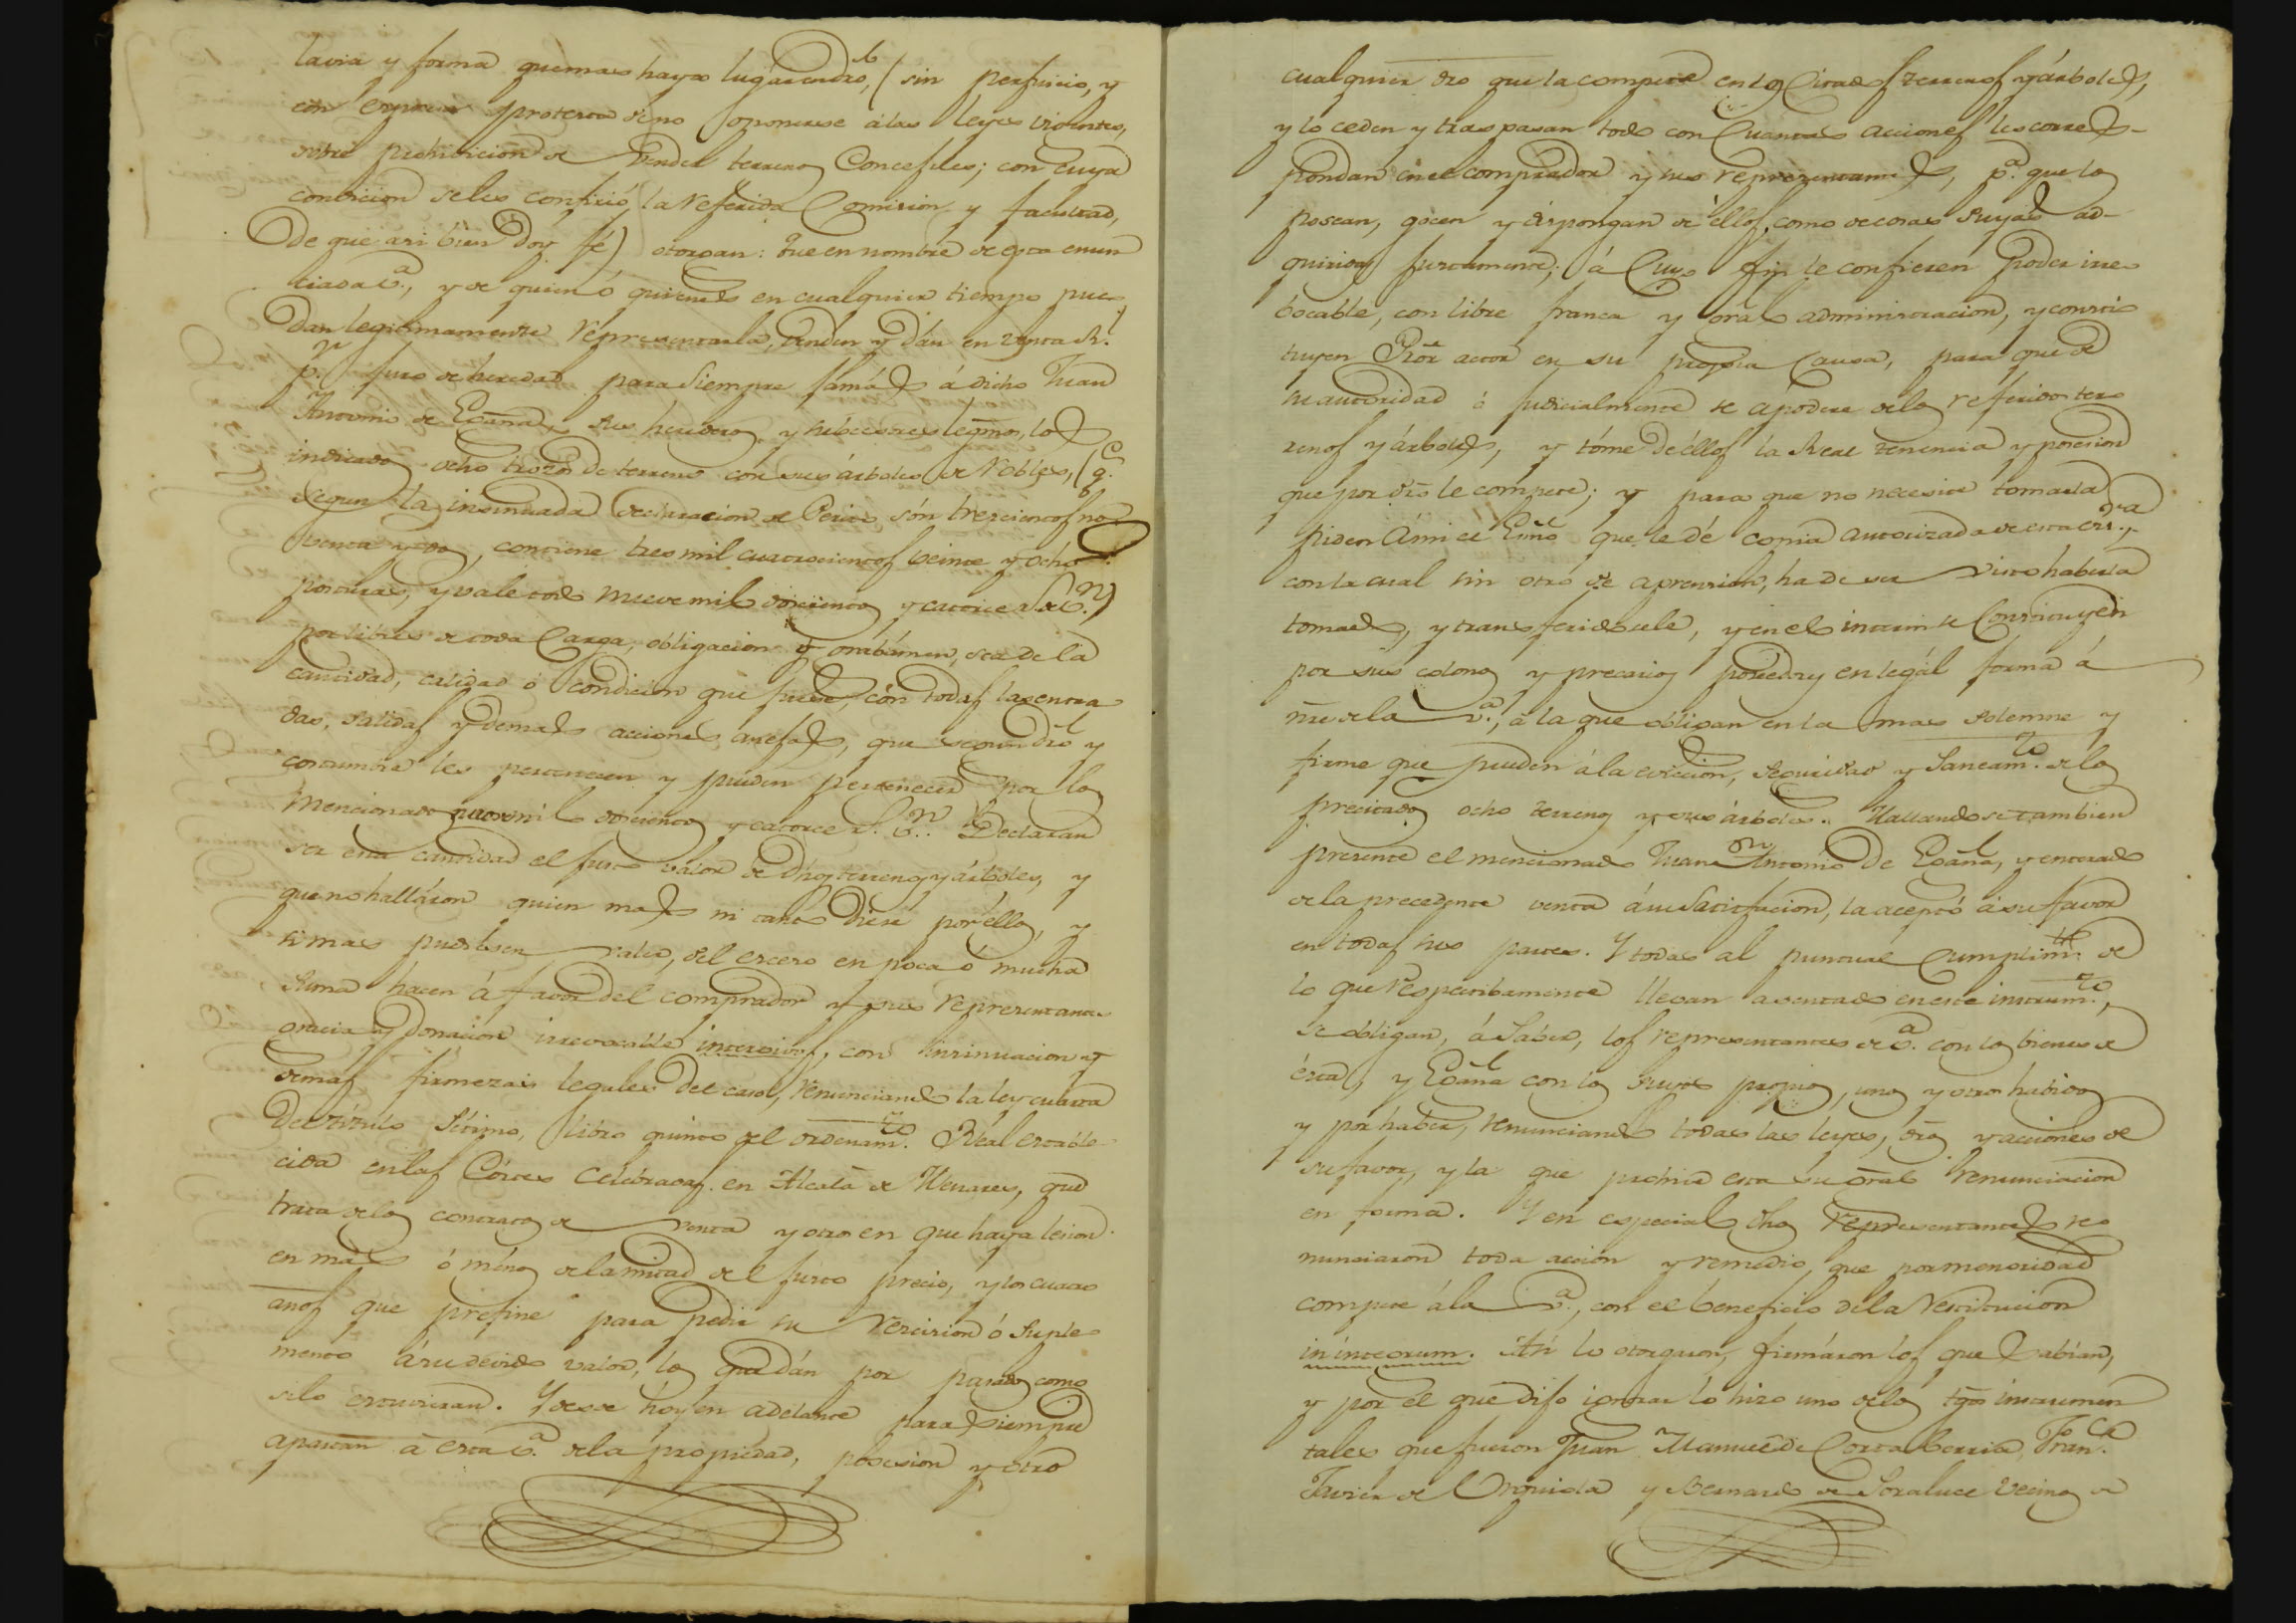 la via y forma que mas haya lugar en dro, (sin perjuicio, y
con expresa protexta de no oponerse á las leyes vigentes,
sobre prohivicion de vender terrenos Concejiles; con cuya
condicion se les confirió la referida Comision y facultad,
de que asi bien doy fé) otorgan: Que en nombre de esta enun
ciada v.ª, y de quien ó quienes en cualquier tiempo pue
dan legitimamente representarla, venden y dán en venta R.l
p.r juro de heredad para siempre jamás á dicho Juan
Antonio de Egaña, sus herederos, y subcesores legmos, los
indicados ocho trozos de terreno con sus árboles de robles, (q.e
segun la insinuada declaracion de Perito són trescientos no
venta y dos, contiene tres mil cuatrocientos veinte y ocho
posturas, y vale todo nueve mil doscientos y catorce r.s de v.n)
por libres de toda Carga, obligacion y grabámen, sea de la
cantidad, calidad ó condicion que fuese, cón todas las entra
das, salidas y demas acciones anejas, que segun dro y
costumbre les pertenecen y pueden pertenecer por los
mencionados nuevemil doscientos y catorce r.s v.n Declaran
ser esta cantidad el justo valor de dhos terrenos y árboles, y
que no halláron quien mas ni tanto diese por éllos, y
si mas pudiesen valer, del exceso en poca ó mucha
suma hacen á favor del comprador y sus representantes
gracia y donacion irrevocable intervivos, con insinuacion y
demas firmezas legales del caso, renunciando la ley cuarta
del título Sétimo, libro quinto del ordenam.to Real estable
cida en las Córtes celebradas en Alcalá de Henares, que
trata de los contratos de venta y otros en que haya lesion
en mas ó ménos de la mitad del justo precio, y los cuatro
años que prefine para pedir su rescision ó suple
mento á su devido valor, los que dán por pasados como
si lo estuvieran. Y desde hoy en adelante para siempre
apartan á esta v.ª de la propiedad, posesion y otro
cualquier dro que la compete en los Citados terrenos y árboles,
y lo ceden y traspasan todo con Cuantas acciones les corres-
pondan en el comprador y sus representantes, p.ª que los
posean, gocen y dispongan de éllos, como de cosas suyas ad-
quiridas justamente; á Cuyo fin le confieren Poder irre
bocable, con libre franca y gral administracion, y consti
tuyen Pror actor en su propia Causa, para que de
su autoridad ó judicialmente se apodere de los referidos ter
renos y árboles, y tóme de éllos la Real tenencia y posesion
que por dro le compete; y para que no necesite tomarla
piden á mi el Esno que le dé copia autorizada de esta esr.ra,
con la cual sin otro de aprension, ha de ser visto haberla
tomado, y transferidosele, y en el interin se Constituyen
por sus colonos y precarios poseedrs en legál forma á
nre de la v.ª, á la que obligan en la mas solemne y
firme que pueden á la eviccion, seguridad y Saneam.to de los
precitados ocho terrenos y sus árboles. Hallandose tambien
presente el mencionado Juan Antonio de Egaña, y enterado
de la precedente venta á su satisfacion, la aceptó á su favor
en todas sus partes. Y todos al puntual Cumplim.to de
lo que respectibamente llevan asentado en este instrum.to,
se obligan, á Saber, los representantes de v.ª con los bienes de
ésta, y Egaña con los suyos propios, unos y otros habidos
y por haber, renunciando todas las leyes, dros y acciones de
su favor, y la que prohive esta su gral renunciacion
en forma. Y en especial dhos representantes re
nunciaron toda accion y remedio, que por menoridad
compete á la v.ª, con el beneficio de la restitucion
in integrum. Asi lo otorgaron, firmáron los que sabian,
y por él que dijo ignorar lo hizo uno de los tgos instrumen
tales que fueron Juan Manuel de Cortaberria, Fran.co
Javier de Orguiola y Bernardo de Soraluce Vecinos de